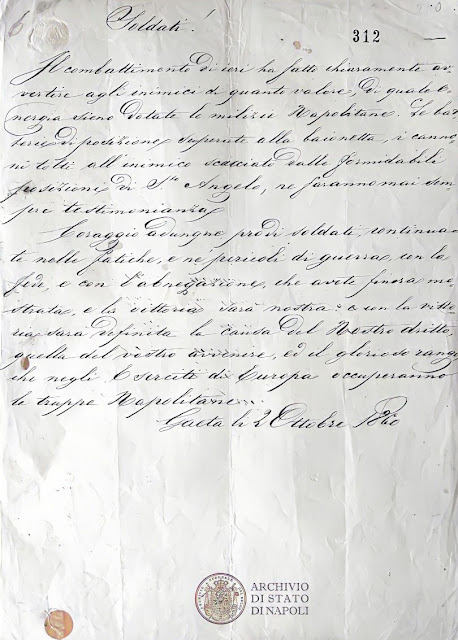 6
Soldati!
312
Il combattimento di ieri ha fatto chiaramente av-
vertire agli inimici di quanto valore, di quale E-
nergia sieno dotate le milizie Napolitane. Le bat-
terie di posizione superate alla baionetta, i canno-
ni tolti all'inimico scacciato dalle formidabili
posizioni di St. Angelo, ne faranno mai sem-
pre testimonianza.
Coraggio adunque prodi soldati, continua-
te nelle fatiche, e ne' pericoli di guerra con la
fede, e con l'abnegazione, che avete finora mo-
strata, e la vittoria sarà nostra: e con la vitto-
ria sarà definita la causa del Nostro dritto
quella del vostro avvenire, ed il glorioso rango
che negli Eserciti di Europa occuperanno
le truppe Napolitane.
Gaeta li 2 Ottobre 1860
ARCHIVIO
DI STATO
DI NAPOLI